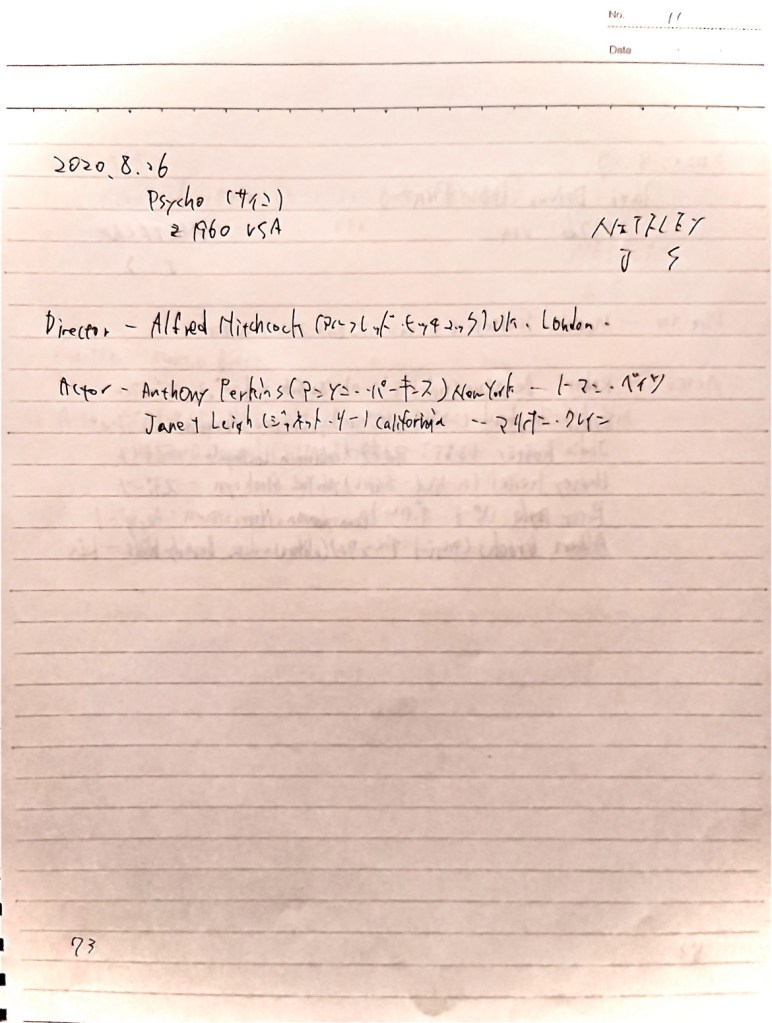 No. 11
Date
2020.8.26
Psycho (サイコ)
1960 USA
NETFLEY
J S
Director - Alfred Hitchcock (アルフレッド・ヒッチコック) UK. London.
Actor - Anthony Perkins (アンソニー・パーキンス) New York -- ノーマン・ベイツ
Janet Leigh (ジャネット・リー) California -- マリオン・クレイン
73